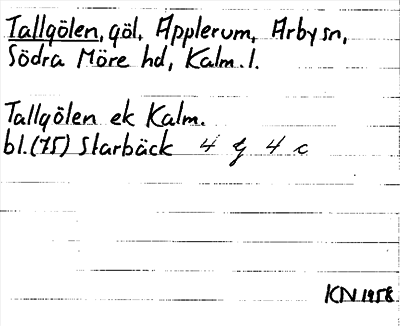 Tallgölen, göl, Applerum, Arby sn,
Södra Möre hd, Kalm. l.
Tallgölen ek Kalm.
bl. (75) Starbäck 4 g 4 c
KN 1958